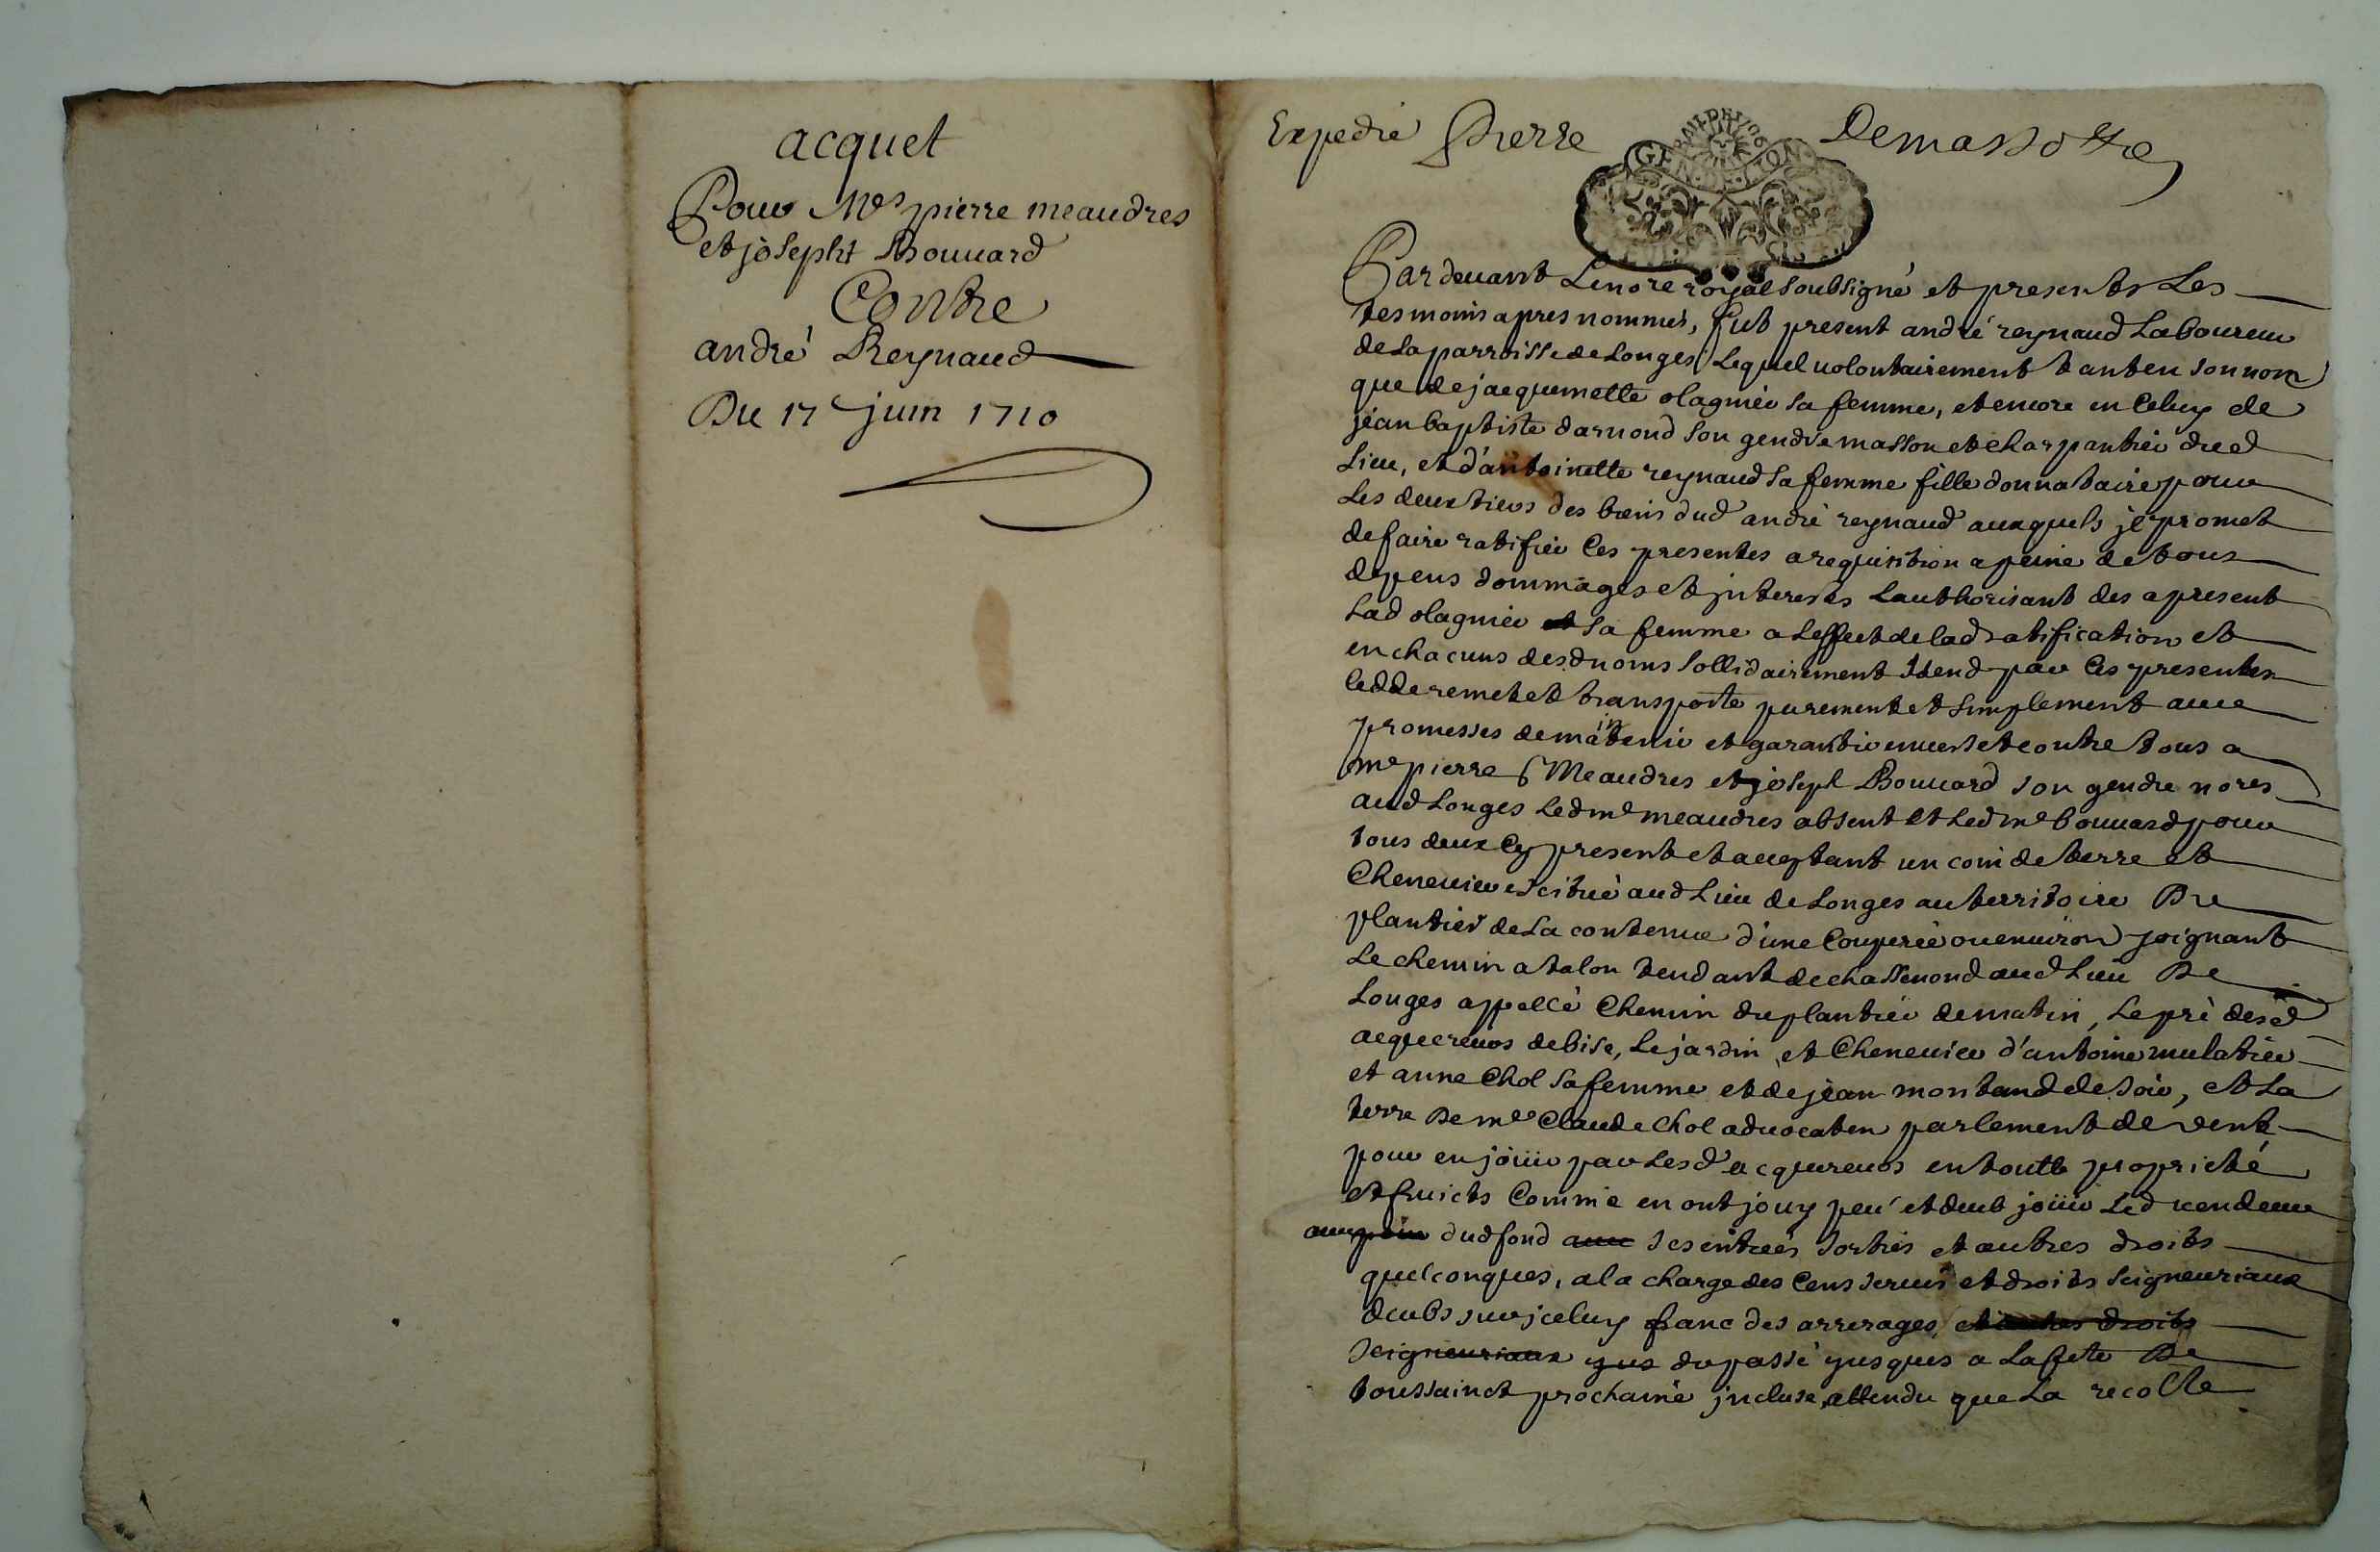 acquet
Pour Mes pierre meaudres
et josepht Bouuard
Contre
andré Reynaud
Du 17e juin 1710
Expedié Pierre Demassottre
GEN DE LYON
Pardeuant Le nore royal soubsigné et presents Les
tesmoins apres nommés, fut present andré reynaud Laboureur
de La parroisse de Longes, Lequel uolontairement tant en son nom
que de jacquemette olagnier sa femme, et encore en Celuy de
jean baptiste darnond son gendre masson et charpantier dud
Lieu, et d'antoinette reynaud sa femme fille donnataire pour
Les deux tiers des biens dud andré reynaud auxquels je promet
de faire ratifier Ces presentes a requisition a peine de tous
depens dommages et jnterests Lauthorisant des apresent
Lad olagnier et sa femme a Leffect de lad ratification et
en chacuns desd noms sollidairement Vend par Ces presentes
cedde remet et transporte purement et simplement auec
promesses de maintenir et garantir enuers et contre tous a
me pierre Meaudres et joseph Bouuard son gendre nores
aud Longes Led me meaudres absent et Led me bouuard pour
tous deux Cy present et acceptant un coin de terre et
Cheneuier scitué aud Lieu de Longes au territoire Du
plantier de La contenue d'une Couperée ou enuiron joignant
Le chemin a talon tendant de chassenoud aud Lieu De
Longes appellé Chemin du plantier de matin, Le pré desd
acquereurs de bise, Le jardin et Cheneuier d'antoine mulatier
et anne Chol sa femme et de jean montaud de soir, et La
terre De me Claude Chol aduocat en parlement de vent
pour en joüir par Lesd acquereurs en toutte proprieté
et fruicts Comme en ont jouy peu et deub joüir Led uendeur
dud fond auec ses entrées sorties et autres droits
quelconques, a la charge des Cens seruis et droits seigneuriaux
deubs sur jceluy franc des arrerages et autres droits
seigneuriaux du passé jusques a La fete De
toussainct prochaine jncluse, attendu que La recolte